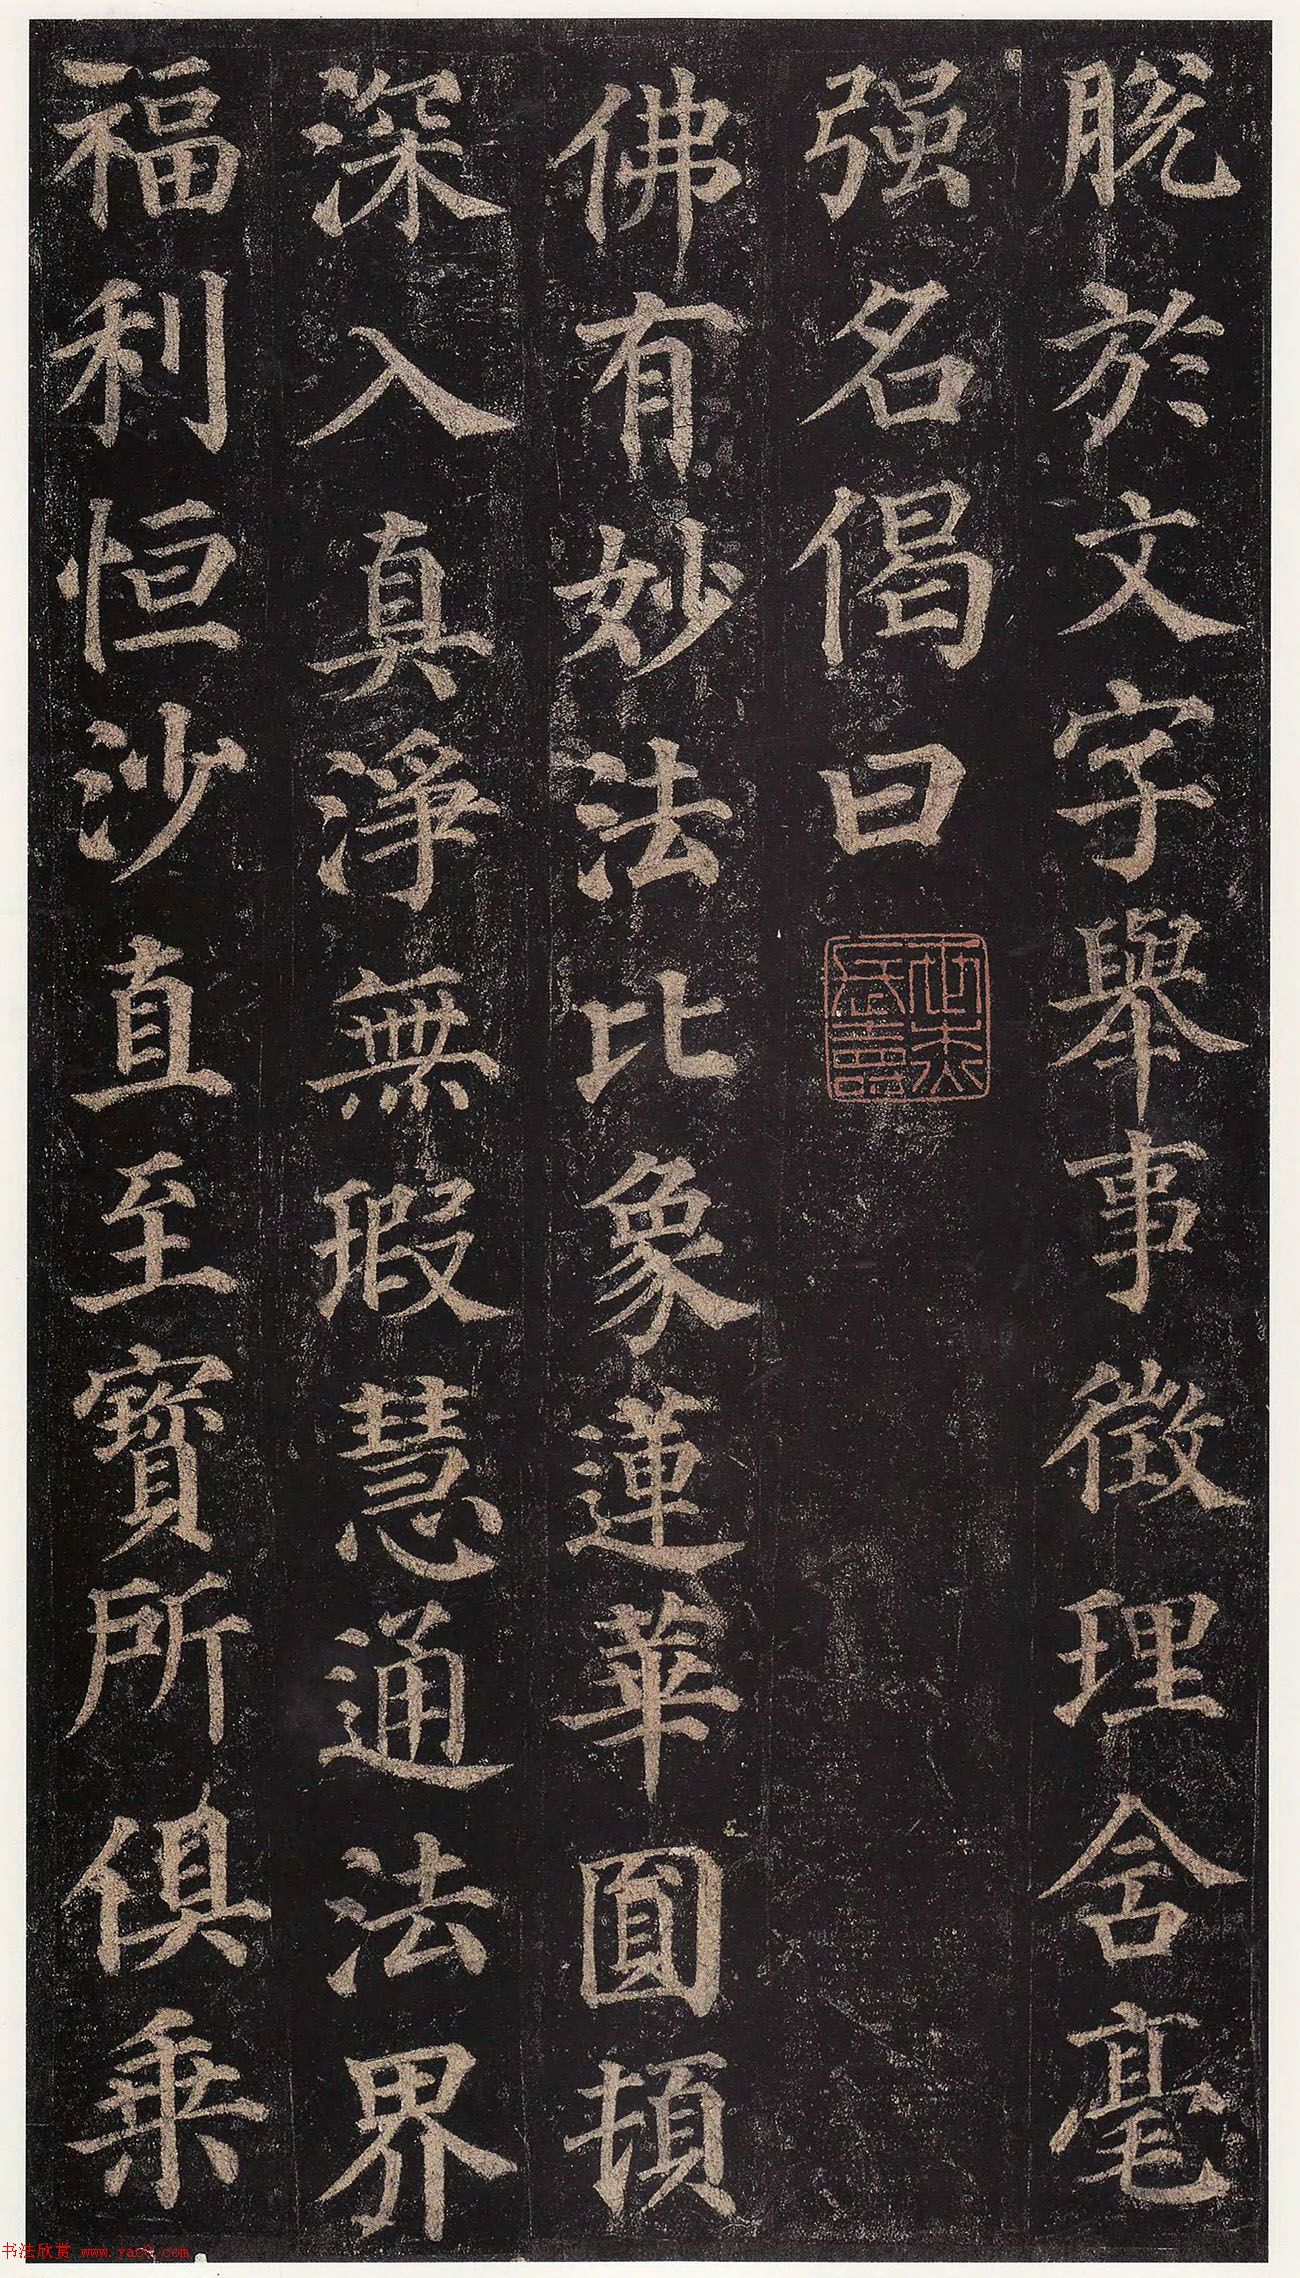 脫於文字舉事徵理含毫
强名偈曰
佛有妙法比象蓮華圓頓
深入真淨無瑕慧通法界
福利恒沙直至寶所俱乘
书法欣赏 www.yac8.com